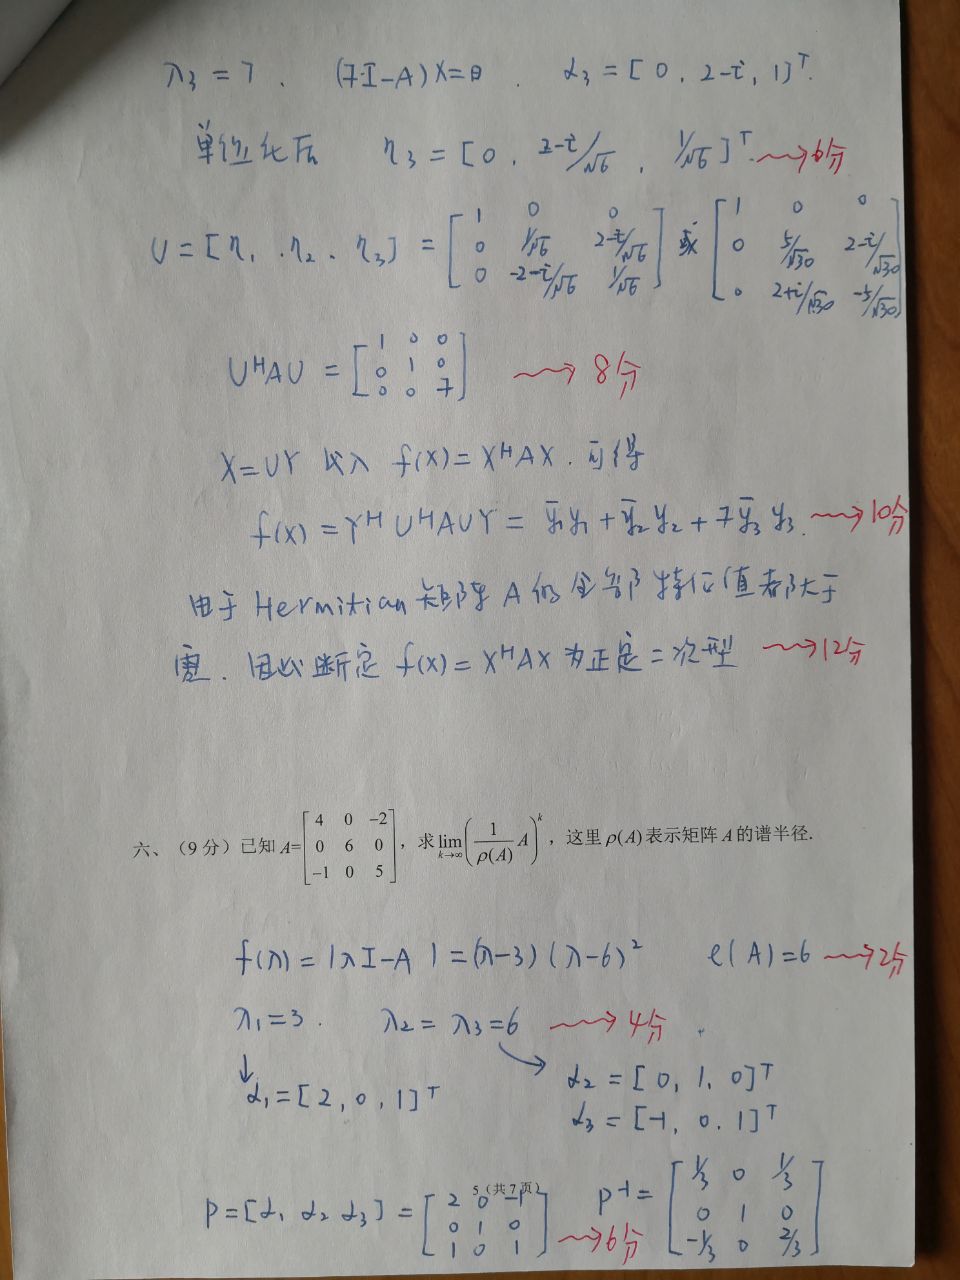 λ₃ = 7 . (7I-A)X=θ . α₃ = [ 0 , 2-i , 1]ᵀ.
单位化后 η₃ = [ 0 , 2-i/√6 , 1/√6 ]ᵀ. → 6分
U = [ η₁ , η₂ , η₃ ] = [ 1 0 0 ; 0 1/√6 2-i/√6 ; 0 -2-i/√6 1/√6 ] 或 [ 1 0 0 ; 0 5/√30 2-i/√30 ; 0 2+i/√30 -5/√30 ]
UᴴAU = [ 1 0 0 ; 0 1 0 ; 0 0 7 ] → 8分
X=UY 代入 f(x) = XᴴAX . 可得
f(x) = Yᴴ UᴴAUY = ȳ₁y₁ + ȳ₂y₂ + 7ȳ₃y₃. → 10分
由于 Hermitian 矩阵 A 的全部特征值都大于
零 . 因此断定 f(x) = XᴴAX 为正定二次型 → 12分
六、（9 分）已知 A= [ 4 0 −2 ; 0 6 0 ; −1 0 5 ] ，求 lim k→∞ ( 1/ρ(A) A )ᵏ ，这里 ρ(A) 表示矩阵 A 的谱半径.
f(λ) = |λI-A| = (λ-3) (λ-6)² ρ(A)=6 → 2分
λ₁=3 . λ₂ = λ₃=6 → 4分
α₁ = [ 2 , 0 , 1 ]ᵀ
α₂ = [ 0, 1, 0]ᵀ
α₃ = [-1, 0. 1]ᵀ
5（共 7 页）
P = [α₁ α₂ α₃] = [ 2 0 -1 ; 0 1 0 ; 1 0 1 ] → 6分 P⁻¹ = [ 1/3 0 1/3 ; 0 1 0 ; -1/3 0 2/3 ]